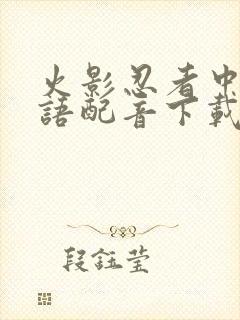 火影忍者中
語配音下載
段鈺莹